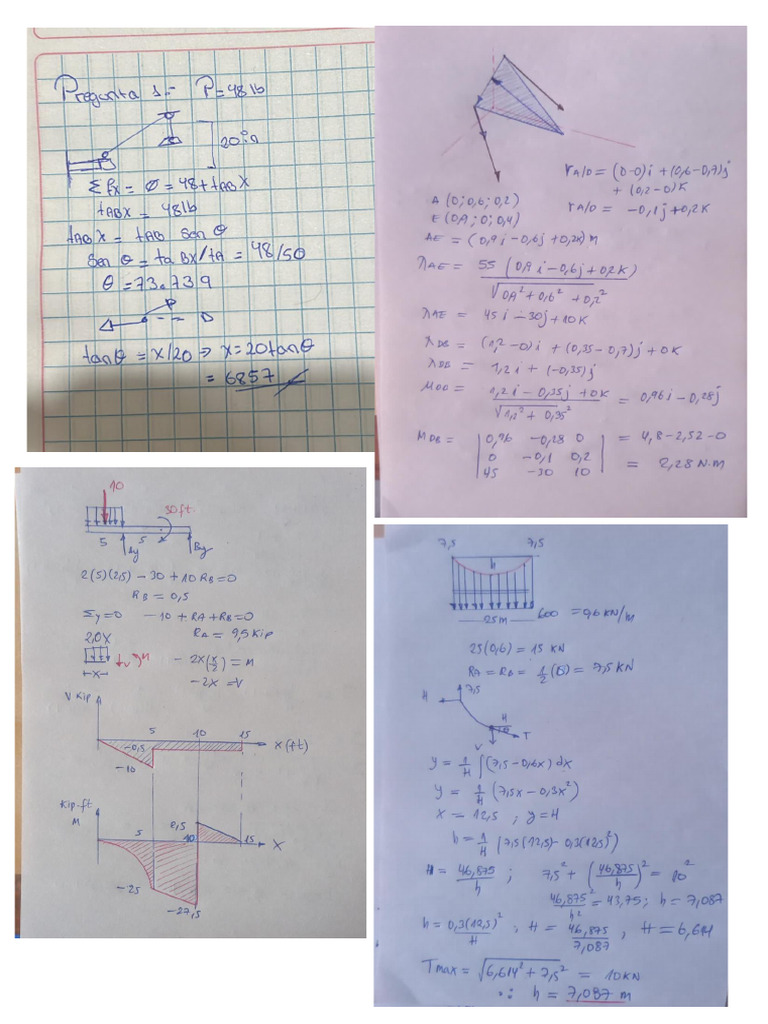 Pregunta 1.- P=48 lb
20in
ΣFx = 0 = 48 + tABX
tABX = 48lb
tABX = tAB sen θ
sen θ = taBX/tA = 48/50
θ = 73.739
P
A D
tanθ = x/20 ⇒ x = 20tanθ
= 6857
rA/D = (0-0)i + (0,6-0,7)j
+ (0,2-0)K
rA/D = -0,1j+0,2K
A (0;0,6;0,2)
E (0,9;0;0,4)
AE = (0,9i-0,6j+0,2K)m
λAE = 55 (0,9i-0,6j+0,2K)
√0,9²+0,6²+0,2²
λAE = 45i-30j+10K
λDB = (1,2-0)i + (0,35-0,7)j+0K
λDB = 1,2i + (-0,35)j
1,2i-0,35j+0K = 0,96i-0,28j
√1,2²+0,35²
MDB = 0,96 -0,28 0 = 4,8-2,52-0
0 -0,1 0,2
45 -30 10 = 2,28 N.m
10
30ft.
5 5
Ay By
2(5)(2,5) - 30 + 10RB = 0
RB = 0,5
Σy=0 -10 + RA+RB=0
RA = 9,5 Kip
2,0X
V M
x
-2X(X/2) = M
-2X = V
V Kip
5 10 15
X (ft)
-0,5
-10
Kip-ft
M
5 2,5 10 15
X
-25
-27,5
7,5 7,5
h
25m 600 = 0,6 KN/m
25(0,6) = 15 KN
RA = RB = 1/2 (15) = 7,5 KN
7,5
H
H
T
V
y = 1/H ∫(7,5-0,6x)dx
y = 1/H (7,5x-0,3x²)
x = 12,5 ; y=H
h = 1/H [7,5(12,5)-0,3(12,5)²)
H = 46,875/h ; 7,5² + (46,875/h)² = 10²
46,875²/h² = 43,75; h = 7,087
h = 0,3(12,5)²/H ; H = 46,875/7,087 , H = 6,614
Tmax = √6,614²+7,5² = 10KN
∴ h = 7,087 m